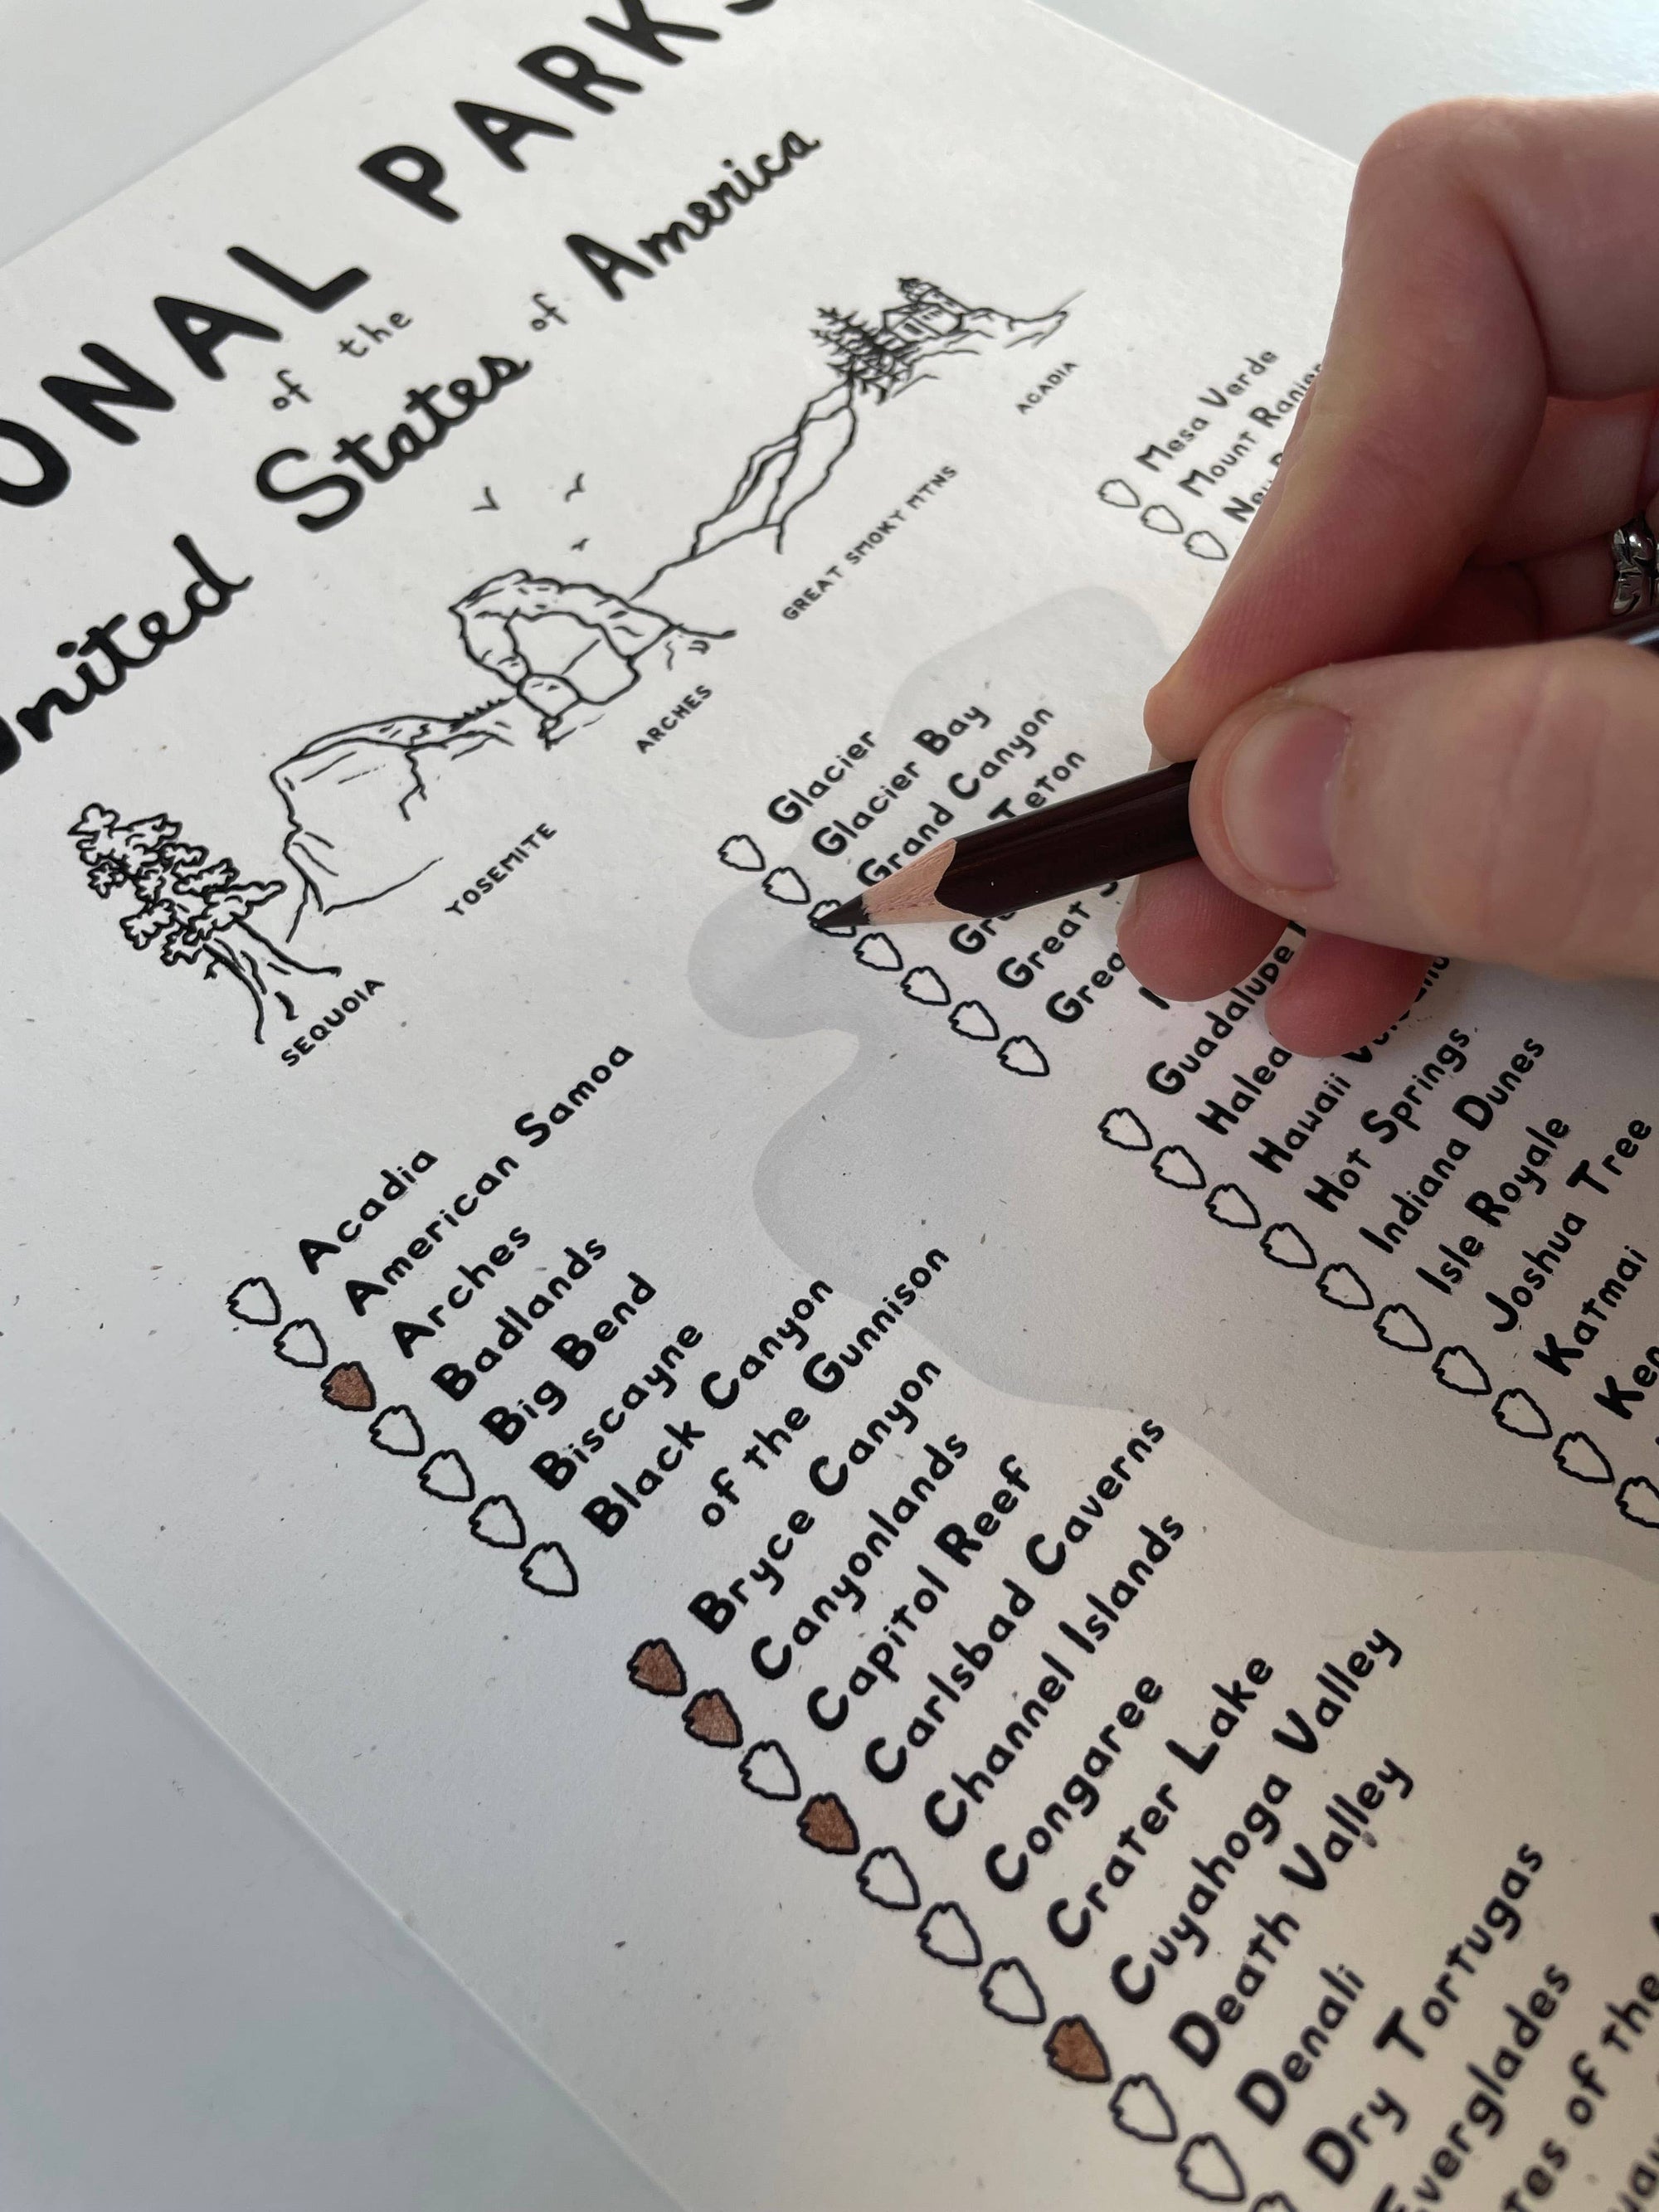 ONAL PARKS
of the
United States of America
SEQUOIA
YOSEMITE
ARCHES
GREAT SMOKY MTNS
ACADIA
Acadia
American Samoa
Arches
Badlands
Big Bend
Biscayne
Black Canyon
of the Gunnison
Bryce Canyon
Canyonlands
Capitol Reef
Carlsbad Caverns
Channel Islands
Congaree
Crater Lake
Cuyahoga Valley
Death Valley
Denali
Dry Tortugas
Everglades
of the
Glacier
Glacier Bay
Grand Canyon
Teton
Great
Guadalupe
Halea
Hawaii
Hot Springs
Indiana Dunes
Isle Royale
Joshua Tree
Katmai
Ken
Mesa Verde
Mount Ranier
New